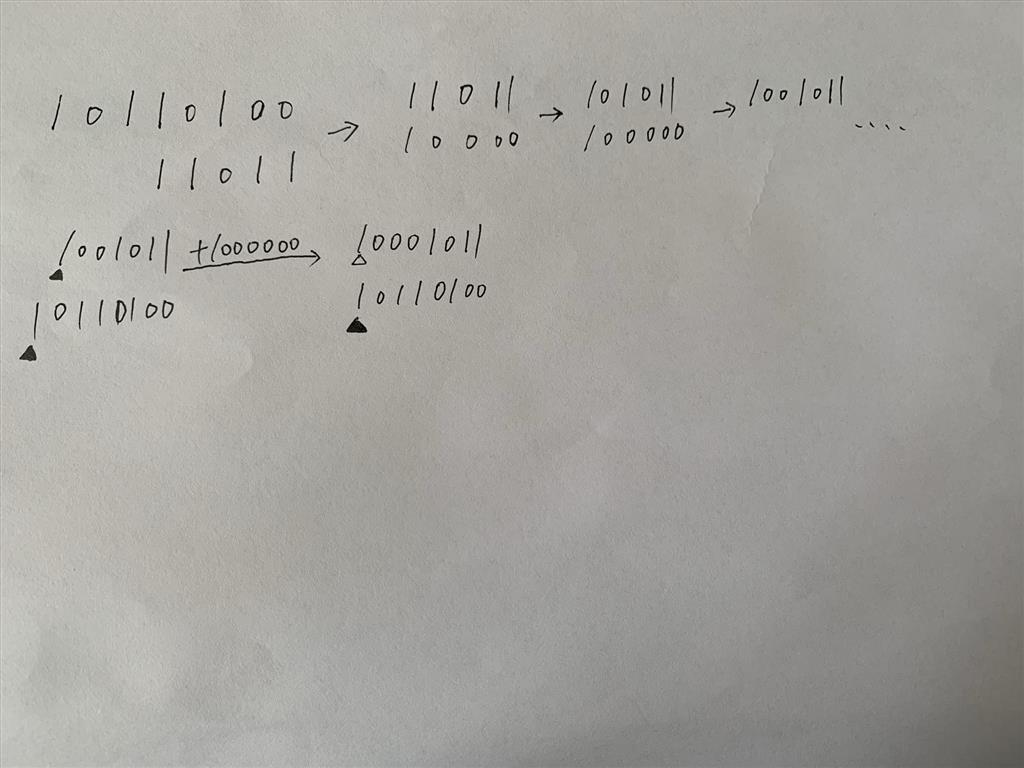 10110100 → 11011 → 101011 → 1001011
11011 10000 100000 ....
1001011 +1000000 → 10001011
10110100 10110100